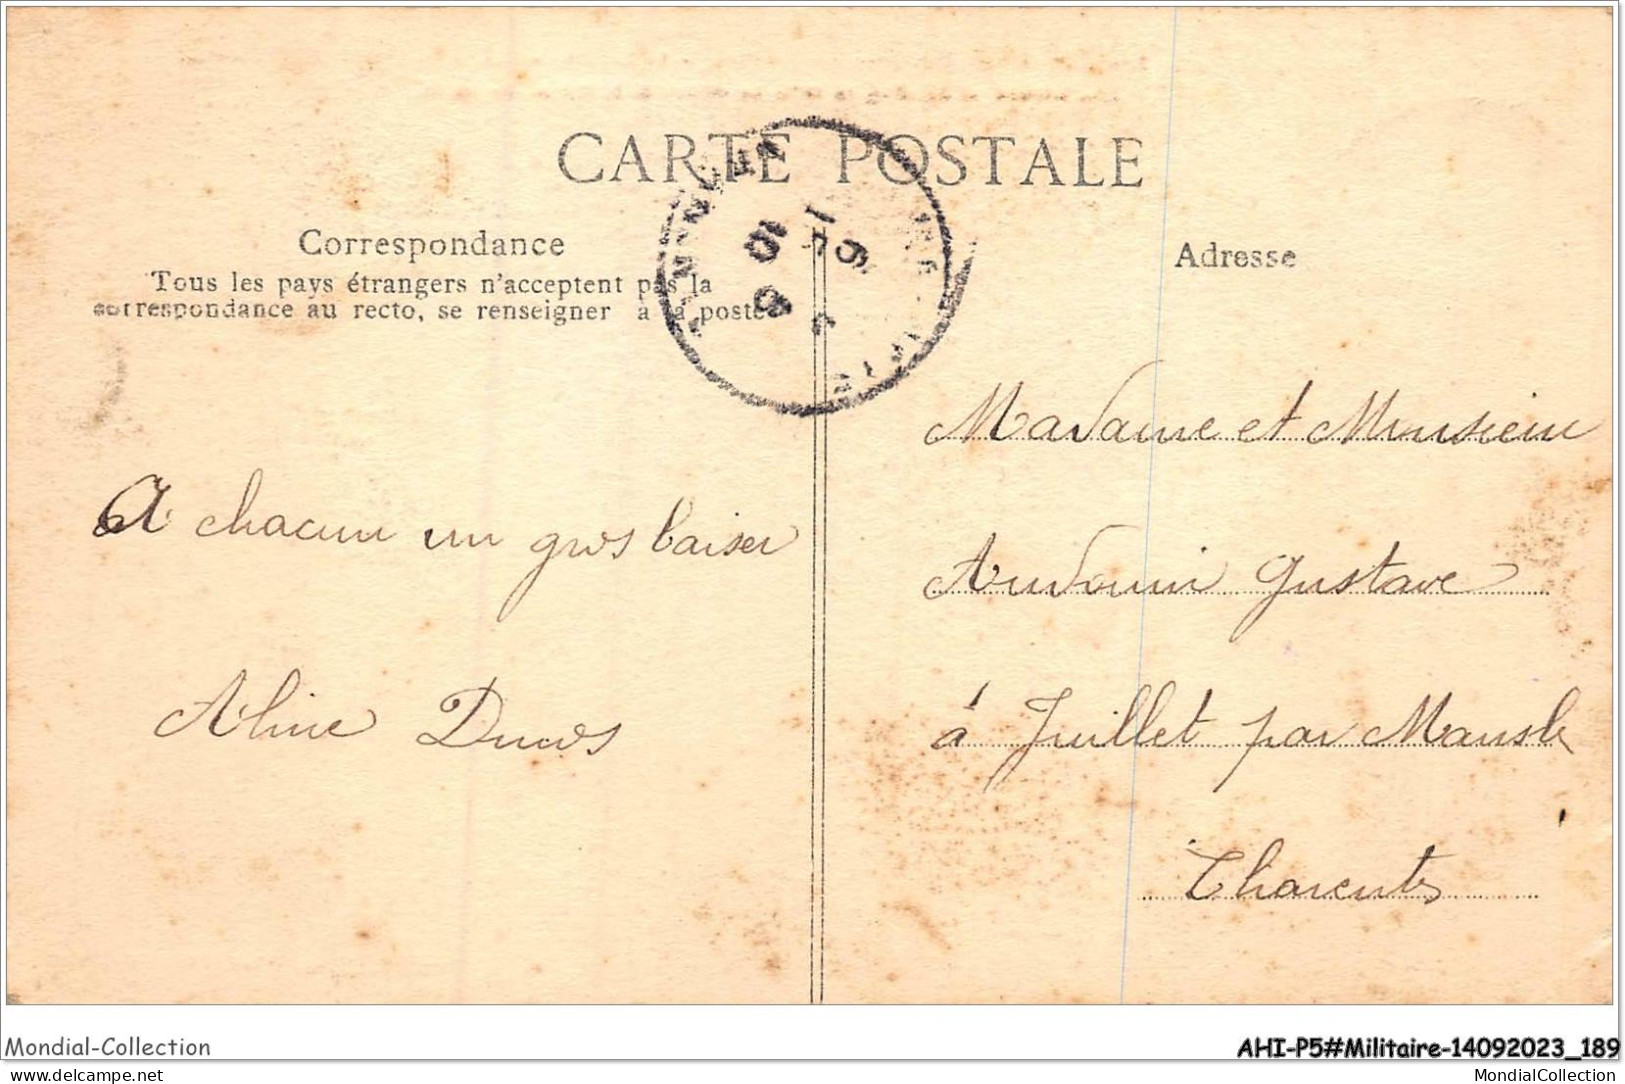 CARTE POSTALE
Correspondance
Tous les pays étrangers n'acceptent pas la
correspondance au recto, se renseigner à la poste
Adresse
A chacun un gros baiser
Aline Ducos
Madame et Monsieur
Audouin Gustave
à Juillet par Mansle
Charente
Mondial-Collection
AHI-P5#Militaire-14092023_189
www.delcampe.net
MondialCollection